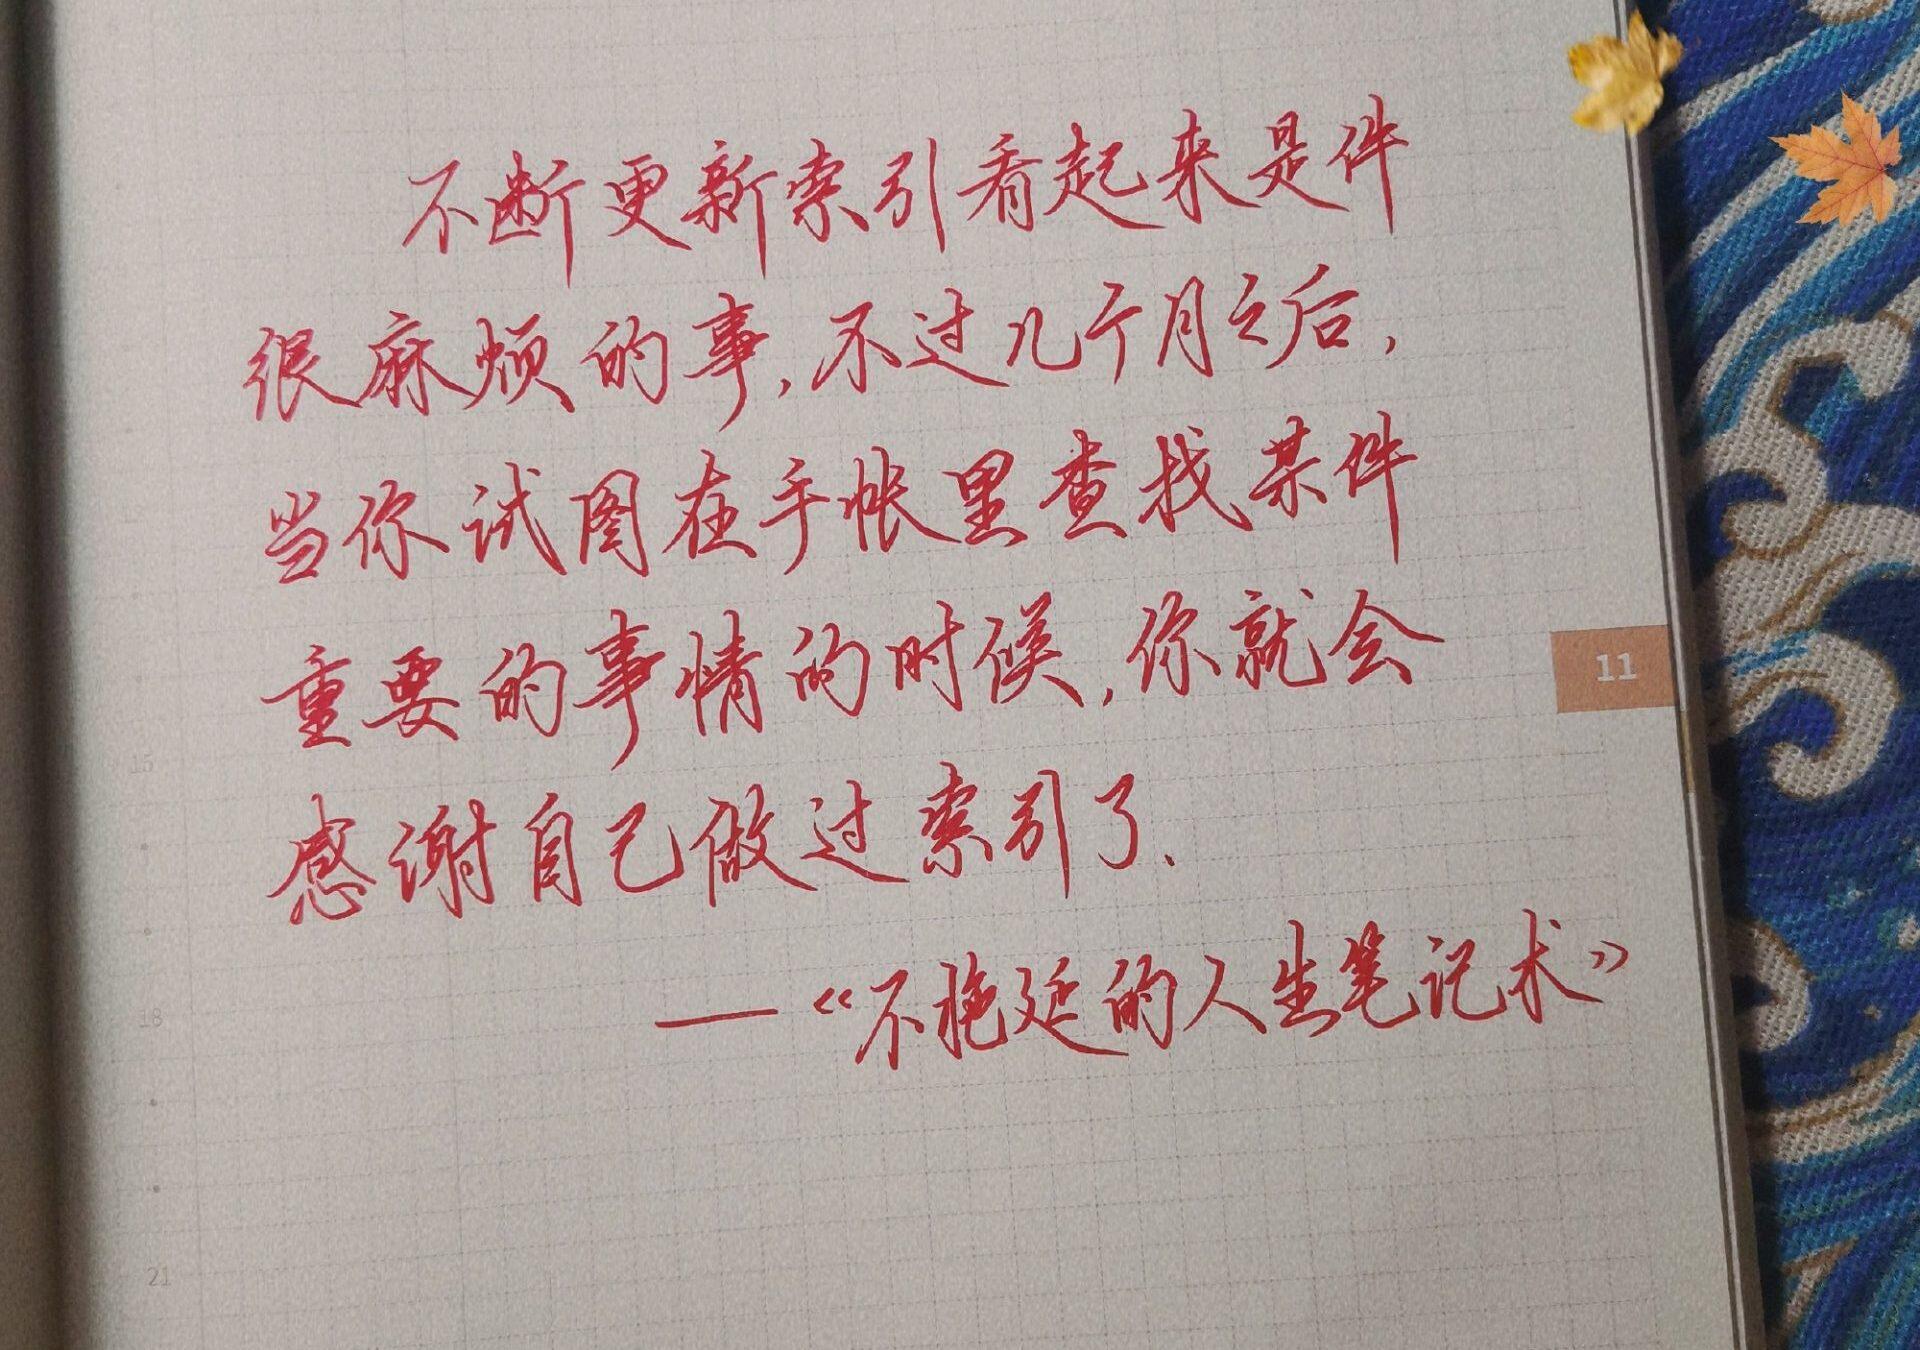 不断更新索引看起来是件
很麻烦的事,不过几个月之后,
当你试图在手帐里查找某件
重要的事情的时候,你就会
11
感谢自己做过索引了.
15
——《不拖延的人生笔记术》
18
21